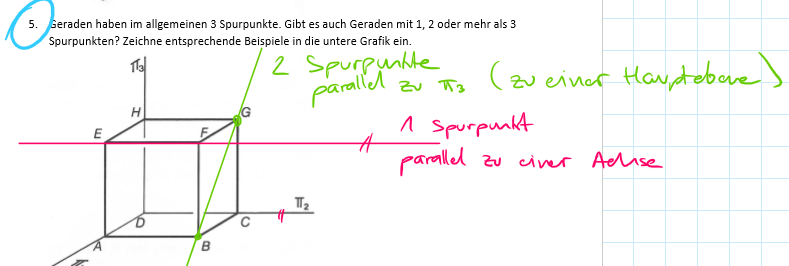 5. Geraden haben im allgemeinen 3 Spurpunkte. Gibt es auch Geraden mit 1, 2 oder mehr als 3
Spurpunkten? Zeichne entsprechende Beispiele in die untere Grafik ein.
2 Spurpunkte
parallel zu π₃ (zu einer Hauptebene)
π₃
H
G
E
F
1 Spurpunkt
parallel zu einer Achse
π₂
D
C
A
B